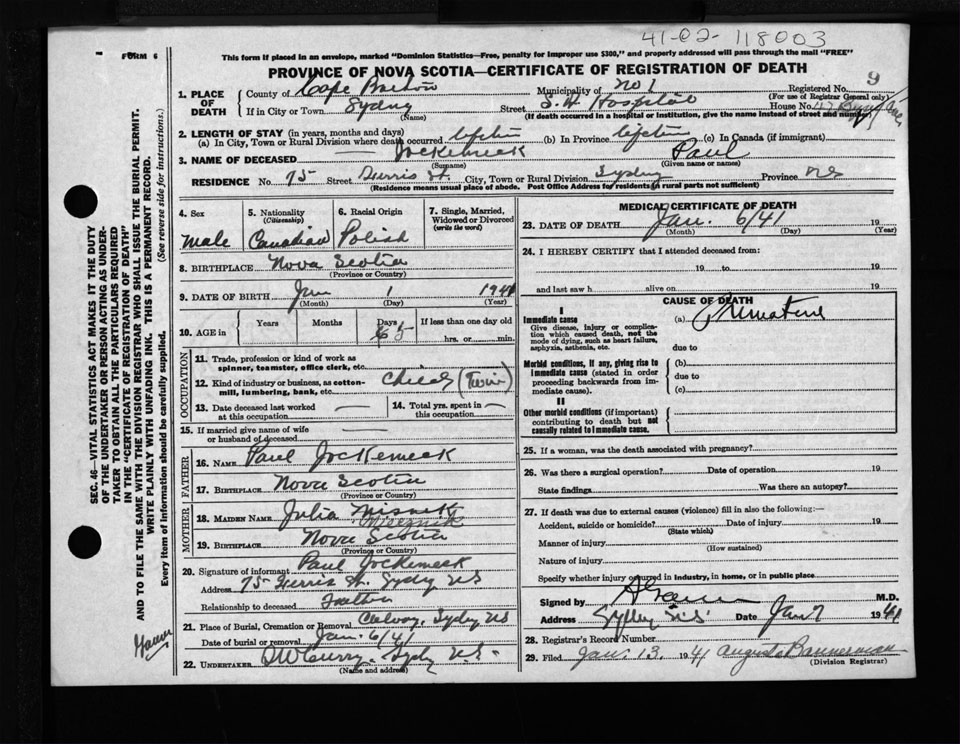 41-02-118003
FORM 6
This form if placed in an envelope, marked "Dominion Statistics—Free, penalty for improper use $300," and properly addressed will pass through the mail "FREE"
PROVINCE OF NOVA SCOTIA—CERTIFICATE OF REGISTRATION OF DEATH
9
1. PLACE OF DEATH
County of Cape Breton Municipality of No 1 Registered No.
(For use of Registrar General only)
If in City or Town Sydney Street Hospital House No. 47
(Name) (If death occurred in a hospital or institution, give the name instead of street and number)
2. LENGTH OF STAY (in years, months and days)
(a) In City, Town or Rural Division where death occurred Lifetime (b) In Province Lifetime (c) In Canada (if immigrant)
3. NAME OF DECEASED Jockemeck Paul
(Surname) (Given name or names)
RESIDENCE No. 75 Street Ferris St. City, Town or Rural Division Sydney Province NS
(Residence means usual place of abode. Post Office Address for residents in rural parts not sufficient)
4. Sex Male
5. Nationality (Citizenship) Canadian
6. Racial Origin Polish
7. Single, Married, Widowed or Divorced (write the word)
8. BIRTHPLACE Nova Scotia
(Province or Country)
9. DATE OF BIRTH Jan 1 1941
(Month) (Day) (Year)
10. AGE in Years Months Days 5 If less than one day old
hrs. or min.
OCCUPATION
11. Trade, profession or kind of work as spinner, teamster, office clerk, etc.
12. Kind of industry or business, as cotton-mill, lumbering, bank, etc. Child (Twin)
13. Date deceased last worked at this occupation —
14. Total yrs. spent in this occupation —
15. If married give name of wife or husband of deceased —
FATHER
16. NAME Paul Jockemeck
17. BIRTHPLACE Nova Scotia
(Province or Country)
MOTHER
18. MAIDEN NAME Julia
19. BIRTHPLACE Nova Scotia
(Province or Country)
20. Signature of informant Paul Jockemeck
Address 75 Ferris St. Sydney NS
Relationship to deceased Father
21. Place of Burial, Cremation or Removal Calvary, Sydney NS
Date of burial or removal Jan. 6/41
22. UNDERTAKER Curry Sydney N.S.
(Name and address)
MEDICAL CERTIFICATE OF DEATH
23. DATE OF DEATH Jan. 6/41 19
(Month) (Day) (Year)
24. I HEREBY CERTIFY that I attended deceased from:
19 to 19
and last saw h alive on 19
CAUSE OF DEATH
I
Immediate cause (a) Premature
Give disease, injury or complication which caused death, not the mode of dying, such as heart failure, asphyxia, asthenia, etc.
due to
Morbid conditions, if any, giving rise to immediate cause (stated in order proceeding backwards from immediate cause).
(b)
due to
(c)
II
Other morbid conditions (if important) contributing to death but not causally related to immediate cause.
25. If a woman, was the death associated with pregnancy?
26. Was there a surgical operation? Date of operation 19
State findings Was there an autopsy?
27. If death was due to external causes (violence) fill in also the following:—
Accident, suicide or homicide? Date of injury 19
(State which)
Manner of injury
(How sustained)
Nature of injury
Specify whether injury occurred in industry, in home, or in public place
Signed by M.D.
Address Sydney NS Jan 7 1941
28. Registrar's Record Number
29. Filed Jan. 13, 1941 Bannerman
(Division Registrar)
SEC. 46—VITAL STATISTICS ACT MAKES IT THE DUTY
OF THE UNDERTAKER OR PERSON ACTING AS UNDER-
TAKER TO OBTAIN ALL THE PARTICULARS REQUIRED
IN THE "CERTIFICATE OF REGISTRATION OF DEATH"
AND TO FILE THE SAME WITH THE DIVISION REGISTRAR WHO SHALL ISSUE THE BURIAL PERMIT.
WRITE PLAINLY WITH UNFADING INK. THIS IS A PERMANENT RECORD.
Every item of information should be carefully supplied. (See reverse side for instructions.)